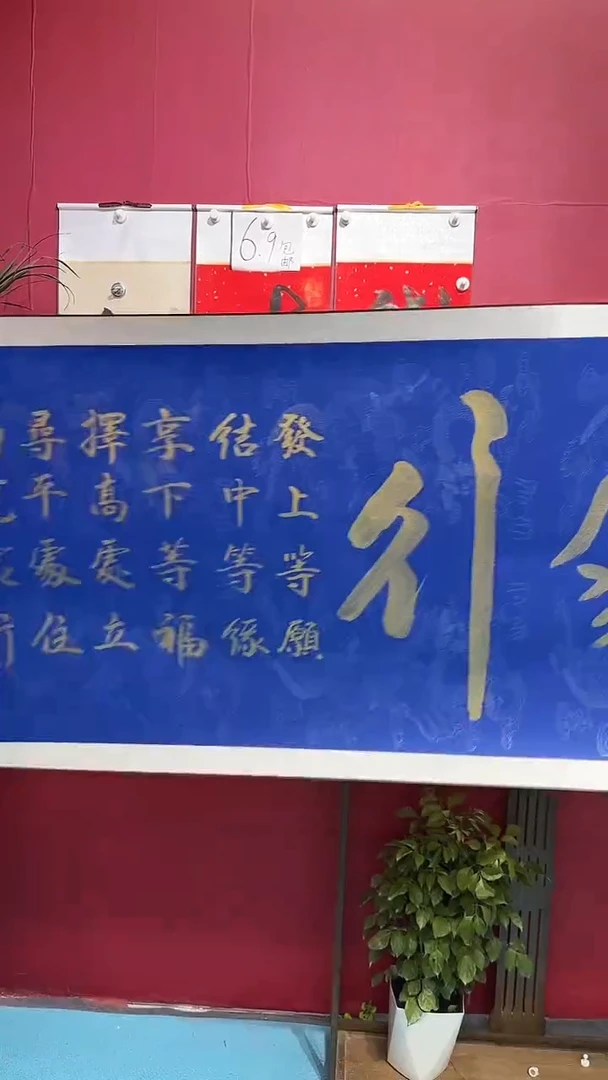 6.9
包邮
行
發上等願
结中等緣
享下等福
擇高處立
尋平處住